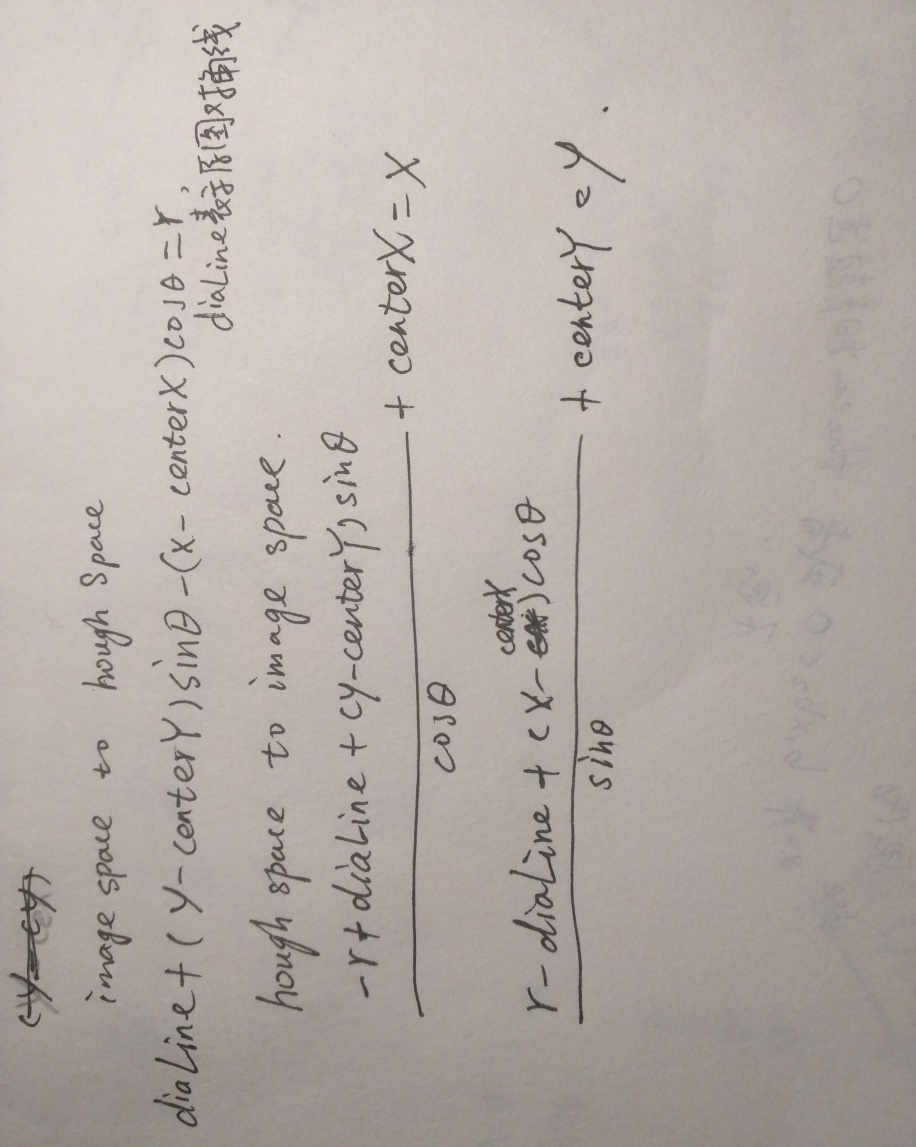 image space to hough Space
diaLine + (Y-centerY) sinθ - (X-centerX) cosθ = r,
diaLine表示原图对角线
hough space to image space.
-r + diaLine + (Y-centerY) sinθ
+ centerX = X
cosθ
centerX
r - diaLine + (X- ) cosθ
+ centerY = Y.
sinθ